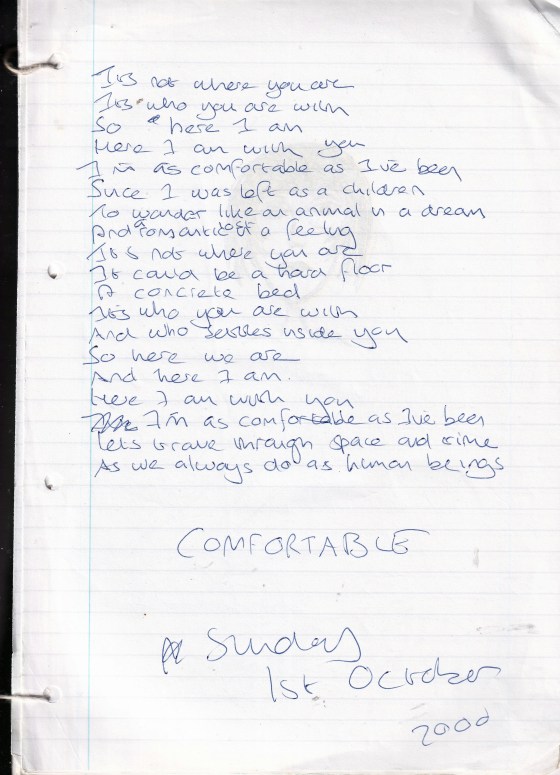 It's not where you are
It's who you are with
So here I am
Here I am with you
I'm as comfortable as I've been
Since I was left as a children
To wander like an animal in a dream
And romantic of a feeling
It's not where you are
It could be a hard floor
A concrete bed
It's who you are with
And who settles inside you
So here we are
And here I am.
Here I am with you
I'm as comfortable as I've been
Lets travel through space and time
As we always do as human beings
COMFORTABLE
Sunday
1st October
2000